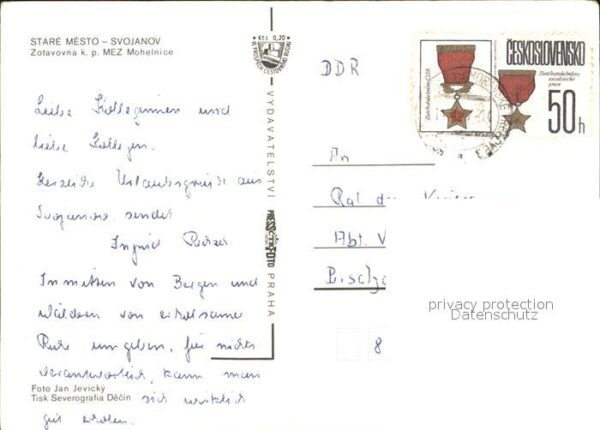 STARÉ MĚSTO – SVOJANOV
Zotavovna k. p. MEZ Mohelnice
Kčs 0,20
VYDAVATELSTVÍ
PRESSFOTO
PRAHA
DDR
ČESKOSLOVENSKO
50h
Liebe Kolleginnen und
liebe Kollegen.
Herzliche Urlaubsgrüße aus
Svojanov sendet
Ingrid
Inmitten von Bergen und
Wäldern von erholsame
Ruhe umgeben, für nichts
verantwortlich, kann man
sich wirklich
gut erholen.
Foto Jan Jevický
Tisk Severografia Děčín
An
Rat
Abt. V
8
privacy protection
Datenschutz